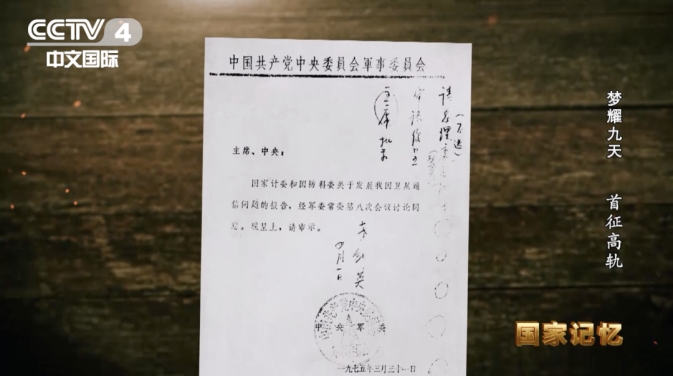 CCTV 4
中文国际
中国共产党中央委员会軍事委員会
主席、中央：
国家计委和国防科委关于发展我国卫星通
信问题的报告，经军委常委第八次会议讨论同
意，现呈上，请审示。
叶剑英
四月一日
中央军委
一九七五年三月三十一日
梦耀九天 首征高轨
国家记忆